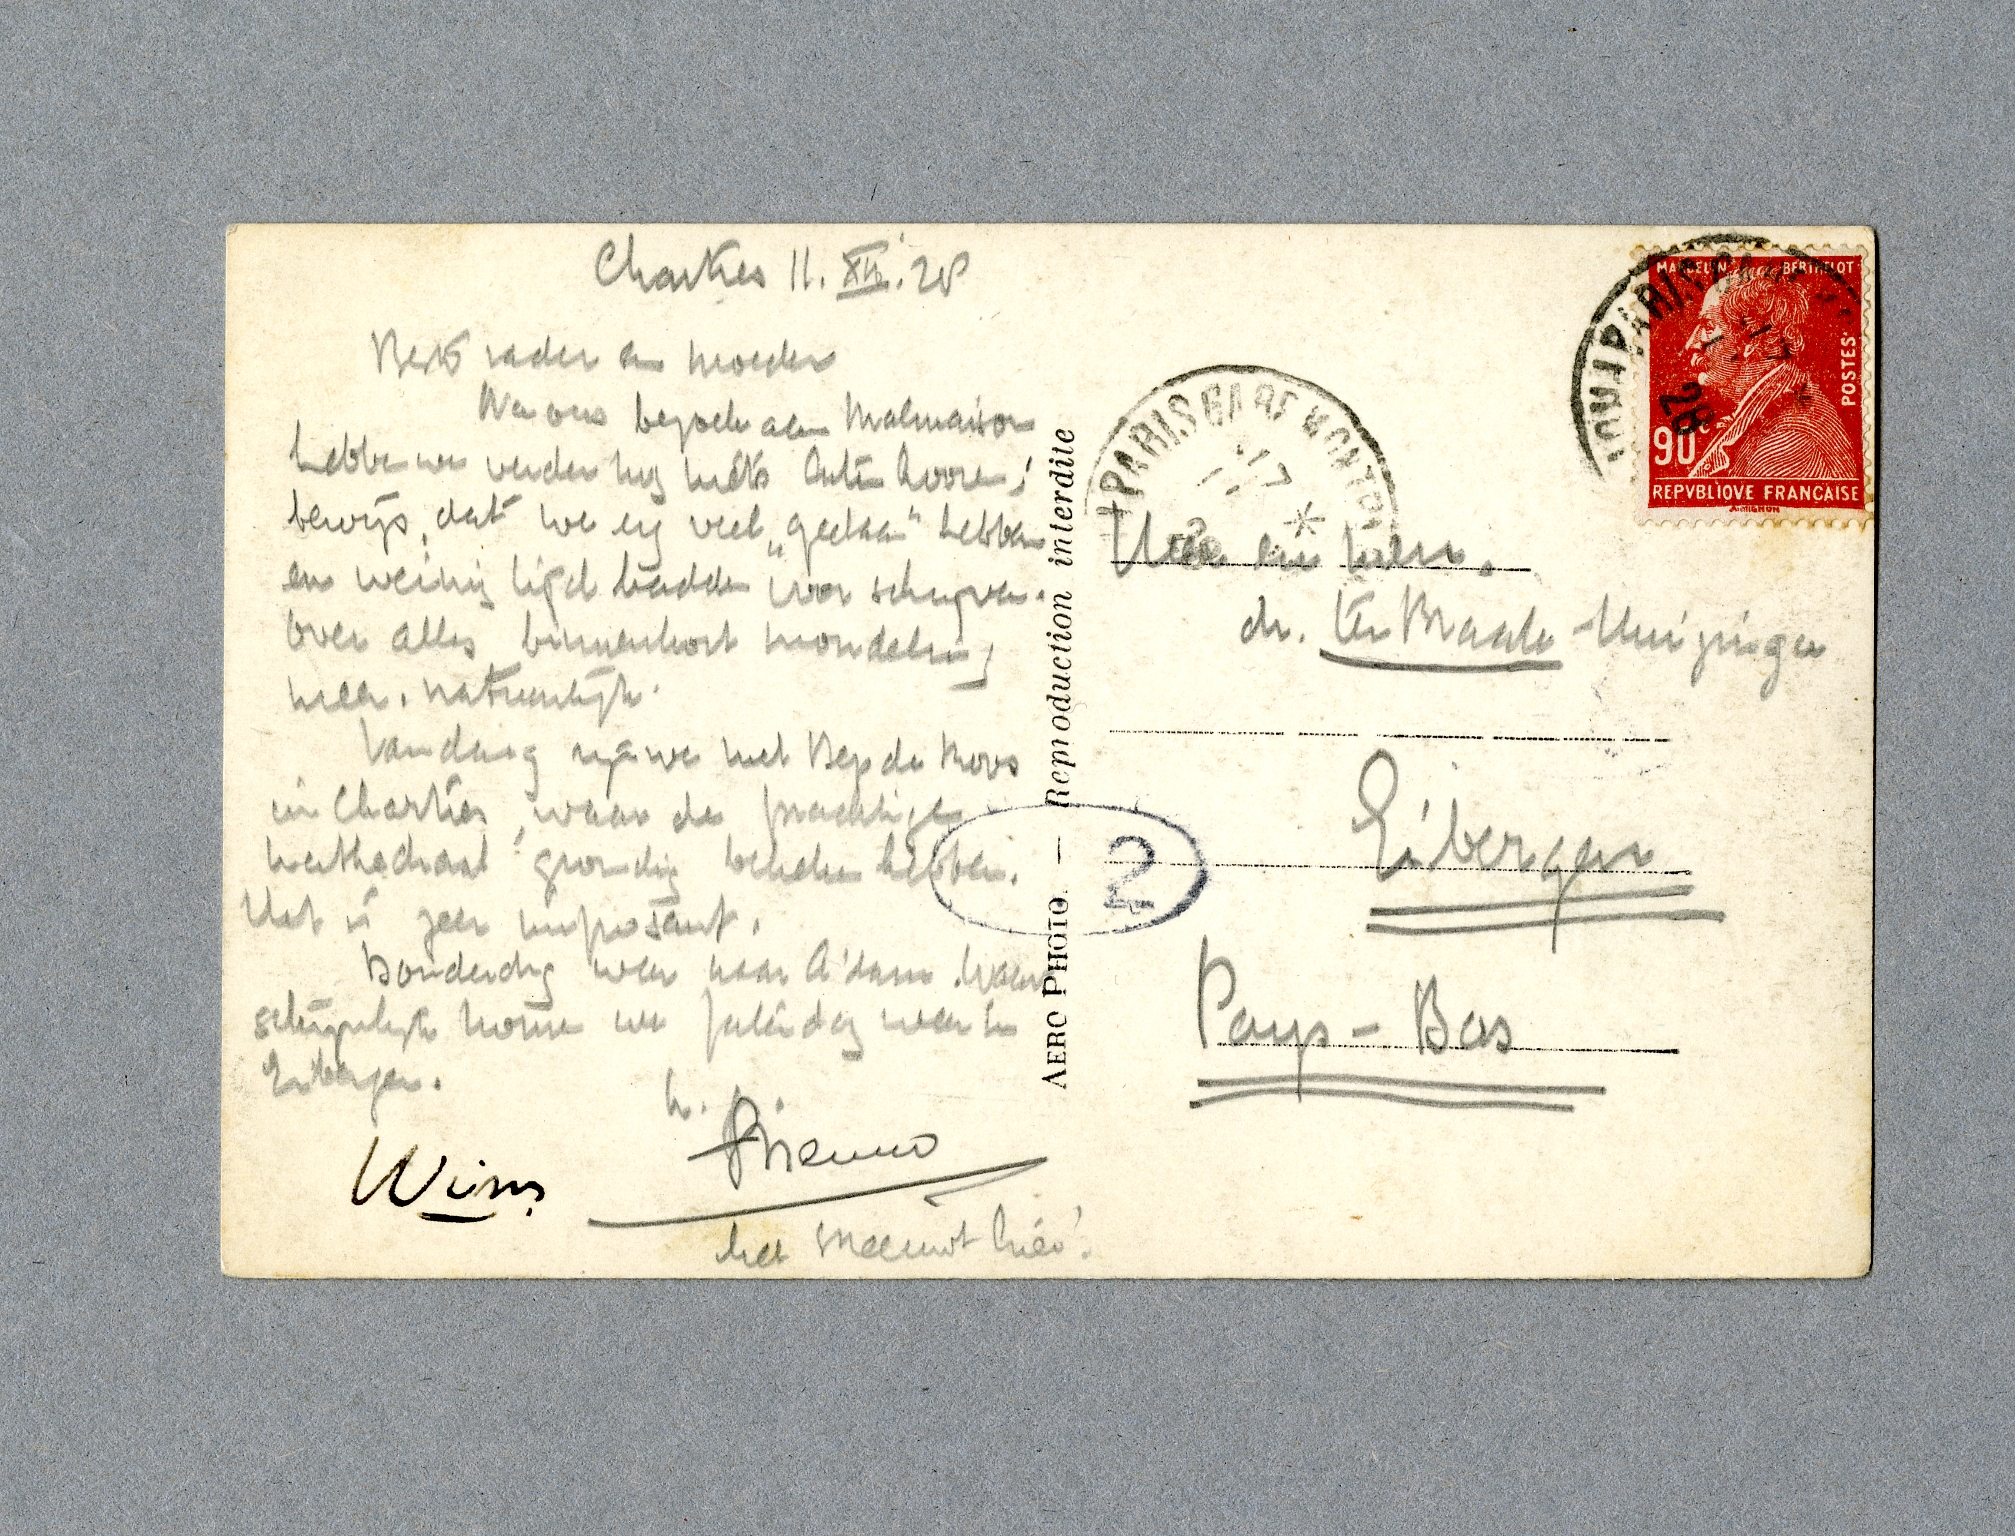 Chartres 11.XII.'28
Beste vader en moeder
Na ons bezoek aan Malmaison
hebben we verder nog niets laten hooren;
bewijs, dat we erg veel „gedaan" hebben
en weinig tijd hadden voor schrijven.
Over alles binnenkort mondeling
meer. natuurlijk.
Vandaag zijn we met Bep de Roos
in Chartres, waar de prachtige
kathedraal grondig bekeken hebben.
Het is zeer imposant.
Donderdag weer naar A'dam. Waar-
schijnlijk komen we Zaterdag weer in
Eibergen.
h.
Menno
Wim
het sneeuwt hier!
AERO PHOTO. — Reproduction interdite
2
PARIS GARE MONTP
17
*
28
MARCELIN BERTHELOT
POSTES
90c
REPVBLIQVE FRANÇAISE
A.MIGNON
PARIS GA
17
28
en heer.
dr. ter Braak-Huizinga
Eibergen
Pays-Bas